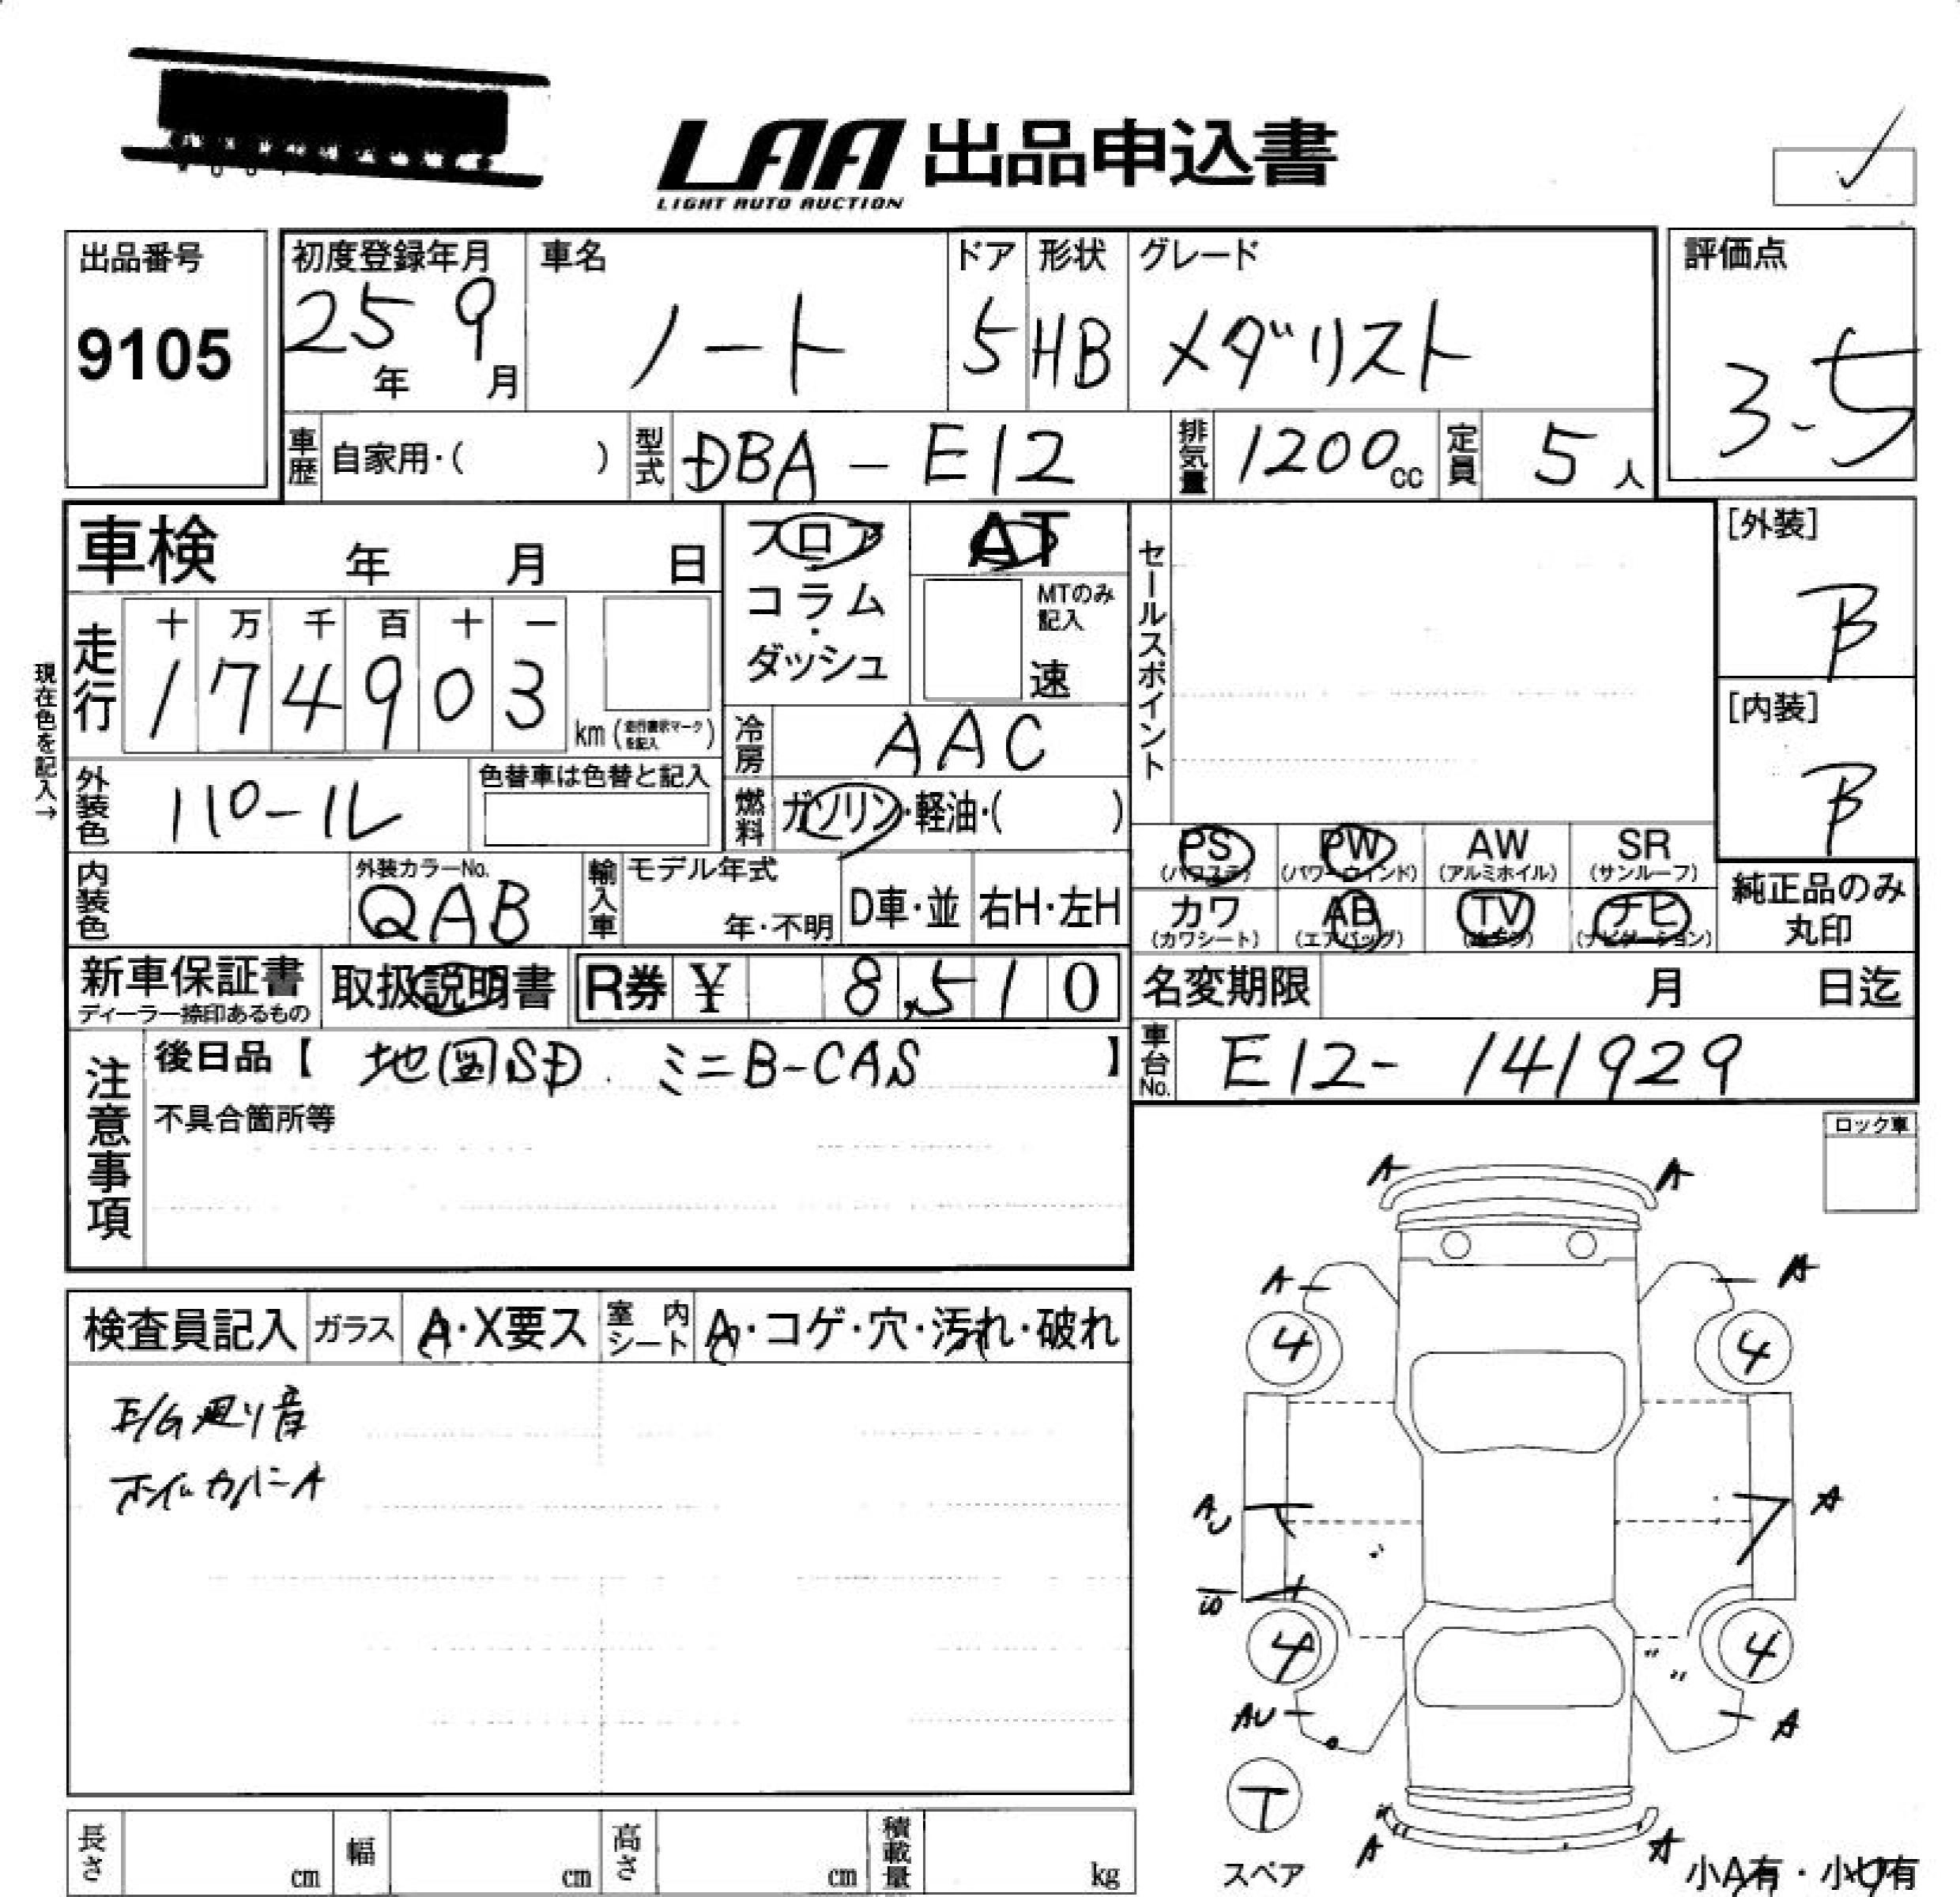 LAA 出品申込書
LIGHT AUTO AUCTION
出品番号
9105
初度登録年月
25年 9月
車名
ノート
ドア
5
形状
HB
グレード
メダリスト
評価点
3.5
車歴 自家用・( )
型式 DBA-E12
排気量 1200cc
定員 5人
車検 年 月 日
フロア・コラム・ダッシュ
AT
MTのみ記入
速
セールスポイント
[外装]
B
[内装]
B
現在色を記入→
走行
十 万 千 百 十 一
1 7 4 9 0 3
km(走行表示マークを記入)
冷房 AAC
外装色 パール
色替車は色替と記入
燃料 ガソリン・軽油・( )
内装色
外装カラーNo.
QAB
輸入車
モデル年式
年・不明
D車・並
右H・左H
PS (パワステ)
PW (パワーウインド)
AW (アルミホイル)
SR (サンルーフ)
カワ (カワシート)
AB (エアバッグ)
TV
ナビ (ナビゲーション)
純正品のみ丸印
新車保証書
ディーラー捺印あるもの
取扱説明書
R券 ¥ 8,510
名変期限 月 日迄
注意事項
後日品【 地図SD. ミニB-CAS 】
不具合箇所等
車台No. E12-141929
ロック車
検査員記入
ガラス A・X要ス
室内シート A・コゲ・穴・汚れ・破れ
E/G廻り音
ホイルカバーA
A A
A A
4 4
AU A
4 4
AU A
T
スペア
A A
小A有・小U有
長さ cm
幅 cm
高さ cm
積載量 kg